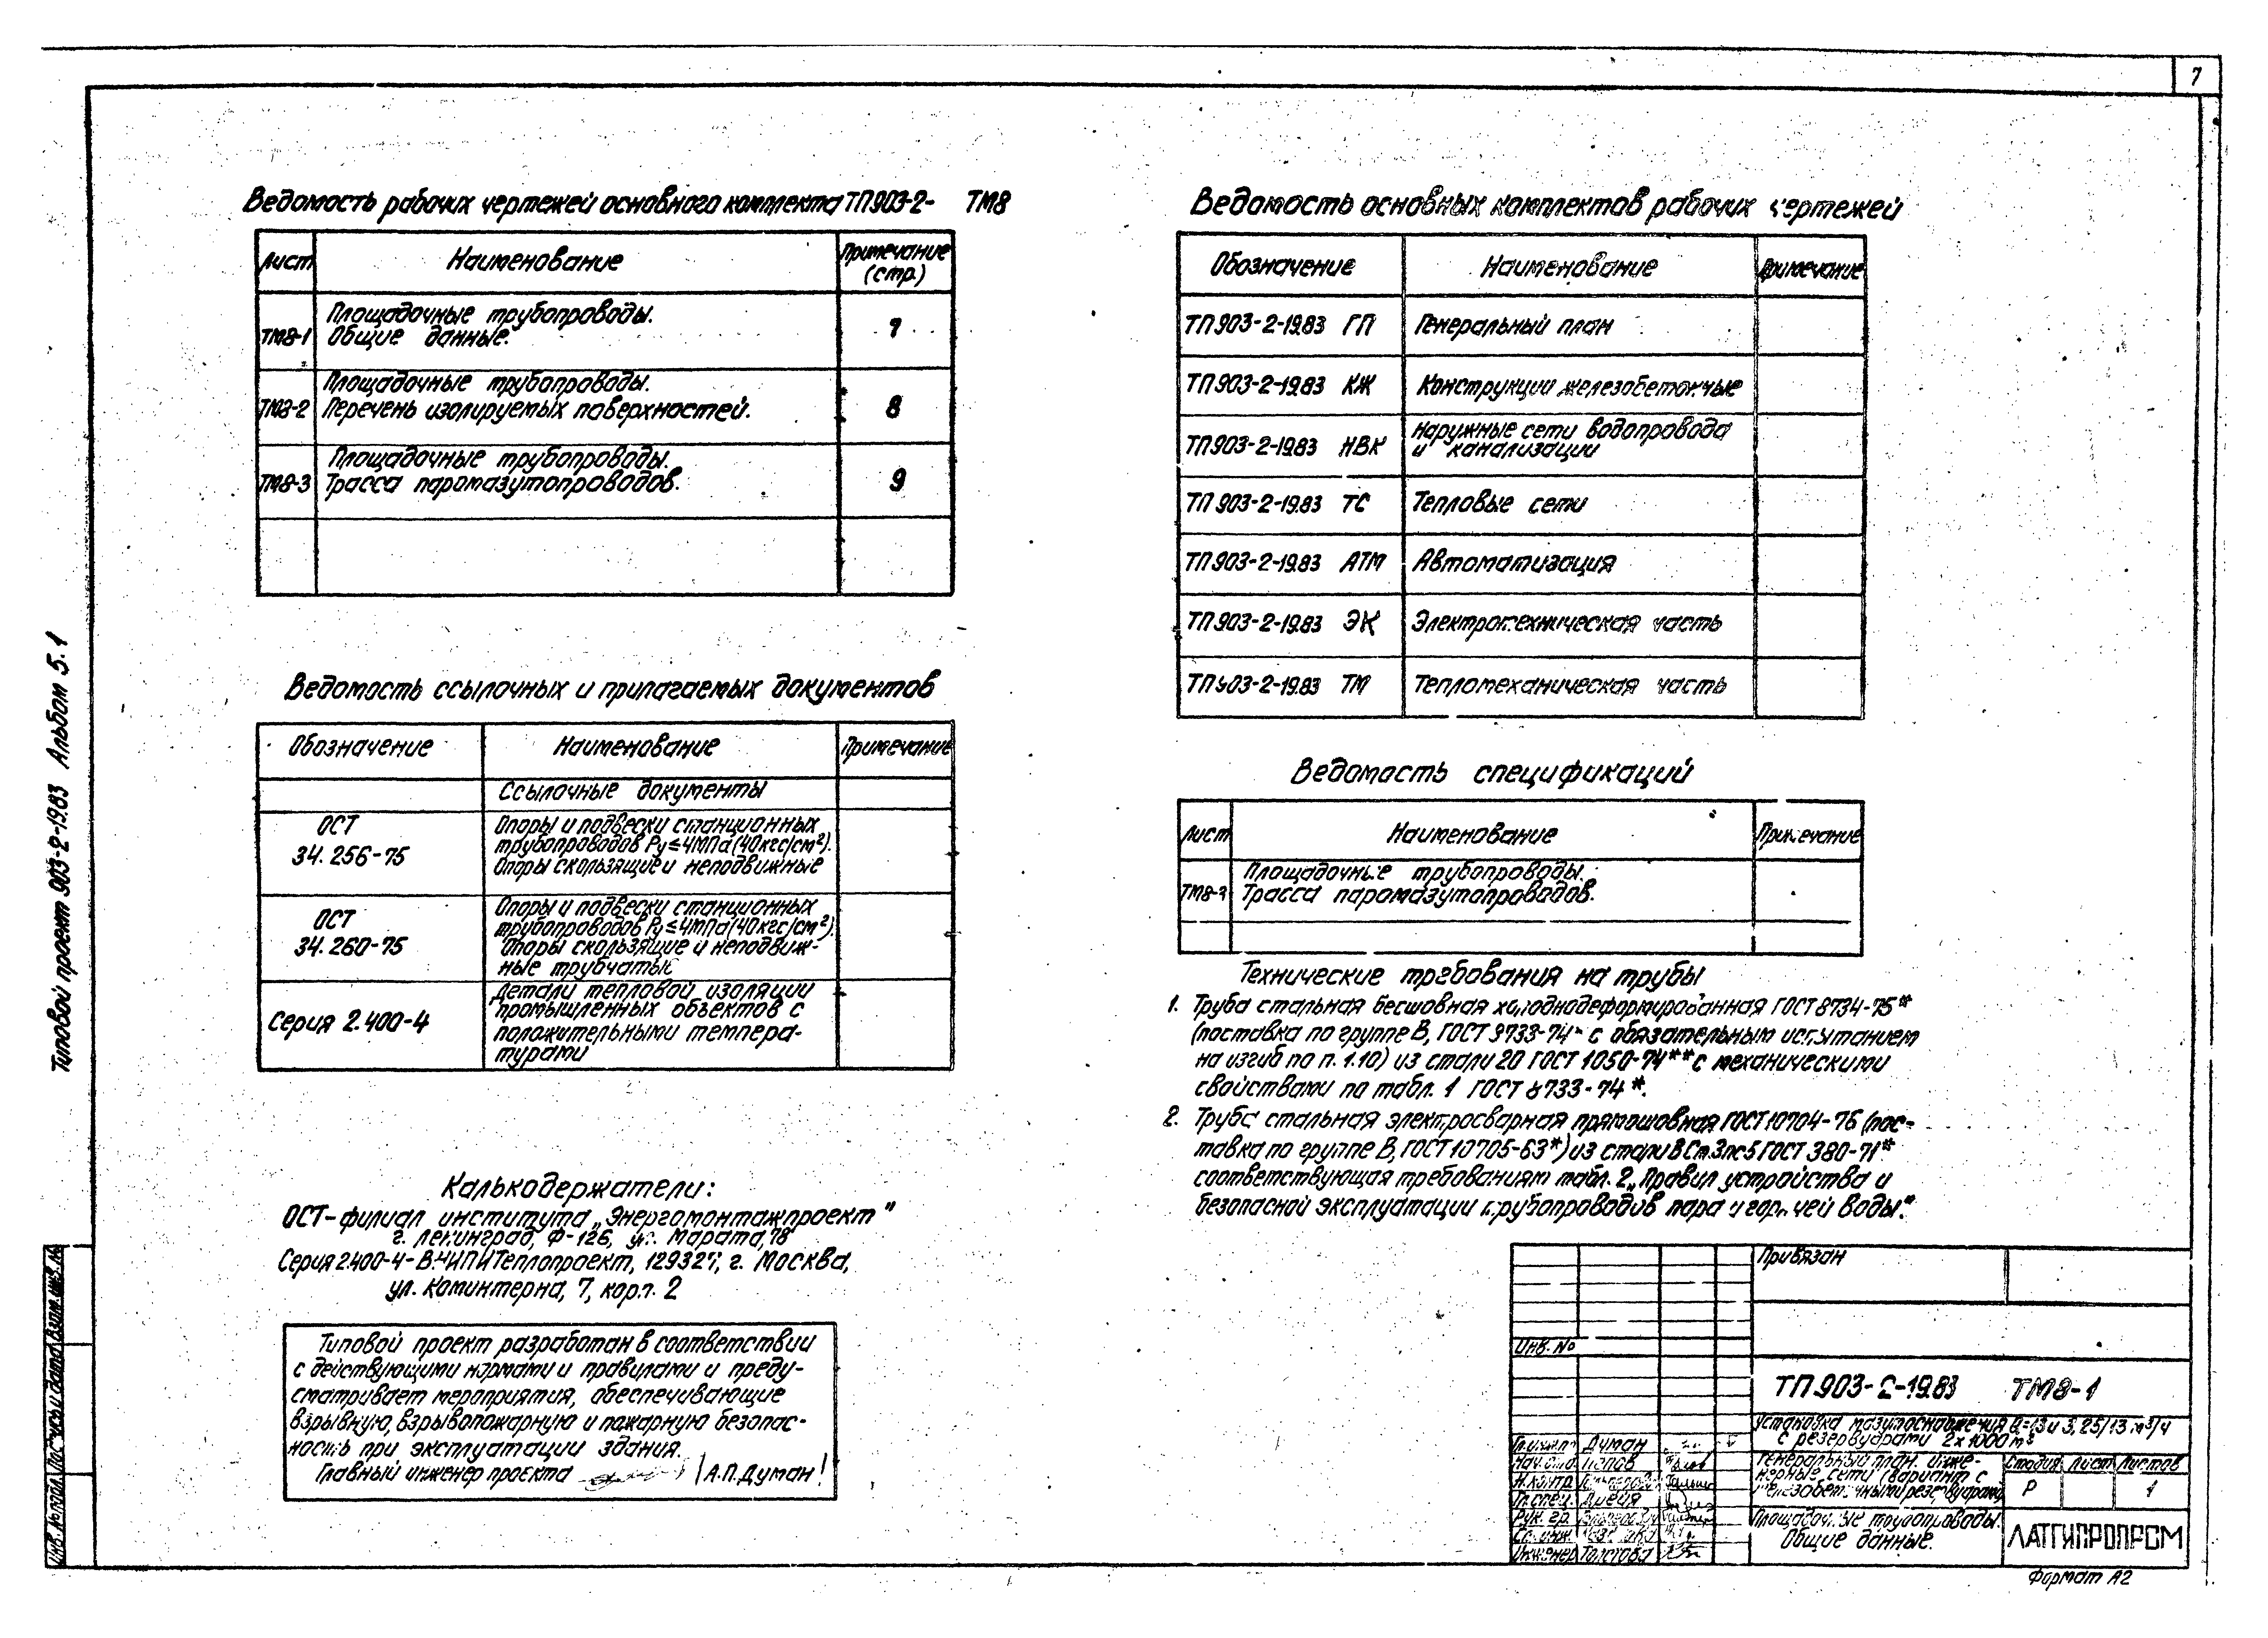 7
Ведомость рабочих чертежей основного комплекта ТП903-2- ТМ8
Лист Наименование Примечание (стр.)
Площадочные трубопроводы.
ТМ8-1 Общие данные. 7
Площадочные трубопроводы.
ТМ8-2 Перечень изолируемых поверхностей. 8
Площадочные трубопроводы.
ТМ8-3 Трасса паромазутопроводов. 9
Ведомость ссылочных и прилагаемых документов
Обозначение Наименование Примечание
Ссылочные документы
ОСТ
34.256-75
Опоры и подвески станционных
трубопроводов Ру≤4МПа(40кгс/см²).
Опоры скользящие и неподвижные
ОСТ
34.260-75
Опоры и подвески станционных
трубопроводов Ру≤4МПа(40кгс/см²).
Опоры скользящие и неподвиж-
ные трубчатые
Серия 2.400-4
Детали тепловой изоляции
промышленных объектов с
положительными темпера-
турами
Калькодержатели:
ОСТ-филиал института „Энергомонтажпроект"
г. Ленинград, Ф-126, ул. Марата, 78
Серия 2.400-4-ВНИПИТеплопроект, 129327, г. Москва,
ул. Коминтерна, 7, корп. 2
Типовой проект разработан в соответствии
с действующими нормами и правилами и преду-
сматривает мероприятия, обеспечивающие
взрывную, взрывопожарную и пожарную безопас-
ность при эксплуатации здания.
Главный инженер проекта /А.П.Думан/
Ведомость основных комплектов рабочих чертежей
Обозначение Наименование Примечание
ТП903-2-19.83 ГП Генеральный план
ТП903-2-19.83 КЖ Конструкции железобетонные
ТП903-2-19.83 НВК Наружные сети водопровода
и канализации
ТП903-2-19.83 ТС Тепловые сети
ТП903-2-19.83 АТМ Автоматизация
ТП903-2-19.83 ЭК Электротехническая часть
ТП903-2-19.83 ТМ Тепломеханическая часть
Ведомость спецификаций
Лист Наименование Примечание
Площадочные трубопроводы.
ТМ8-3 Трасса паромазутопроводов.
Технические требования на трубы
1. Труба стальная бесшовная холоднодеформированная ГОСТ 8734-75*
(поставка по группе В, ГОСТ 8733-74* с обязательным испытанием
на изгиб по п. 1.10) из стали 20 ГОСТ 1050-74** с механическими
свойствами по табл. 1 ГОСТ 8733-74*.
2. Труба стальная электросварная прямошовная ГОСТ 10704-76 (пос-
тавка по группе В, ГОСТ 10705-63*) из стали ВСт3пс5 ГОСТ 380-71*
соответствующая требованиям табл. 2 „Правил устройства и
безопасной эксплуатации трубопроводов пара и горячей воды."
Привязан
Инв. №
ТП903-2-19.83 ТМ8-1
Установка мазутоснабжения Q=13 и 3,25/13 м³/ч
с резервуарами 2х1000 м³
Гл.инж.пр Думан
Нач.отд. Попов
Н.контр.
Гл.спец.
Рук. гр.
Ст. инж.
Инженер Толстова
Генеральный план. Инже-
нерные сети (вариант с
железобетонными резервуарами)
Стадия Лист Листов
Р 1
Площадочные трубопроводы.
Общие данные.
ЛАТГИПРОПРОМ
Формат А2
Типовой проект 903-2-19.83 Альбом 5.1
Инв. № подл. Подпись и дата Взам. инв. №